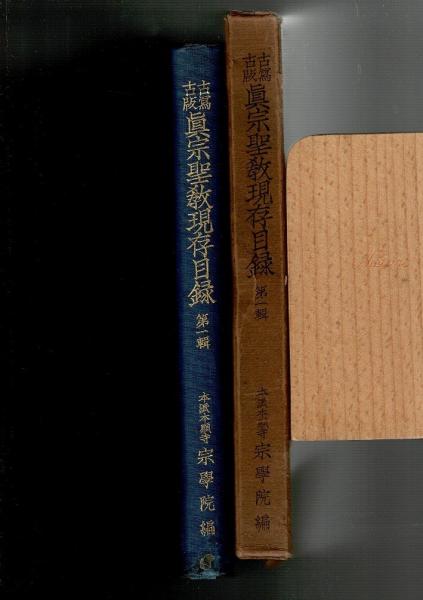 古寫
古版
眞宗聖教現存目録
第一輯
本派本願寺
宗學院編
古寫
古版
眞宗聖教現存目録
第一輯
本派本願寺
宗學院編